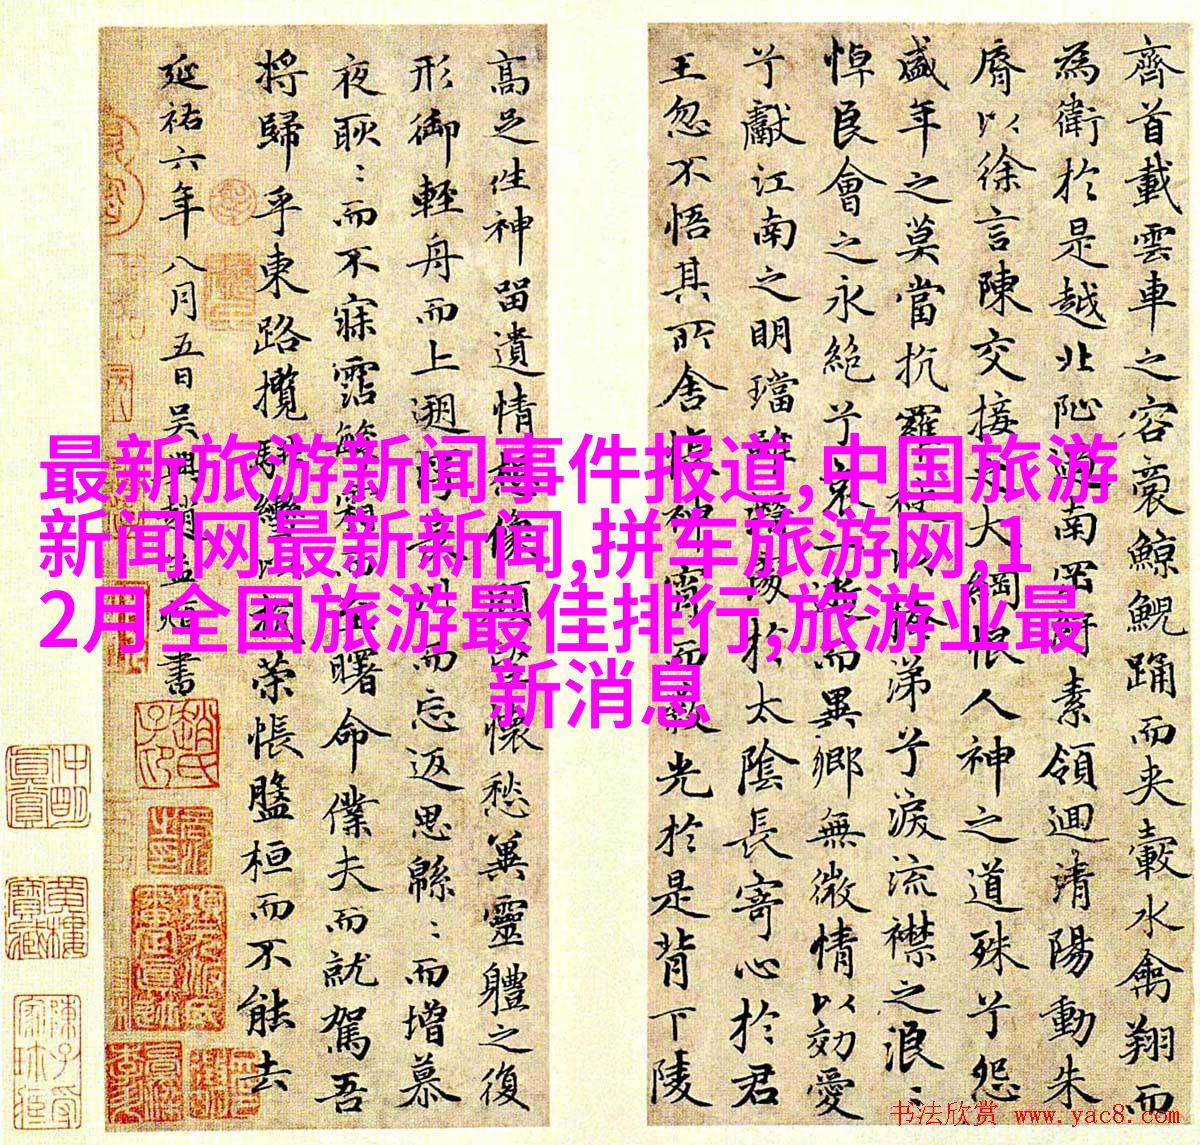 齊首載雲車之容裔鯨鯢踴而夾轂水禽翔而
為衛於是越北沚過南岡紆素領迴清陽動朱
脣以徐言陳交接之大綱恨人神之道殊兮怨
盛年之莫當抗羅袂以掩涕兮淚流襟之浪〻
悼良會之永絕兮哀一逝而異鄉無微情以効愛
兮獻江南之明璫雖潛處於太陰長寄心於君
王忽不悟其所舍悵神宵而蔽光於是背下陵
高足往神留遺情想像顧望懷愁冀靈體之復
形御輕舟而上遡浮長川而忘返思綿〻而增慕
夜耿〻而不寐霑繁霜而至曙命僕夫而就駕吾
將歸乎東路攬騑轡以抗策悵盤桓而不能去
延祐六年八月五日吳興趙孟頫書
最新旅游新闻事件报道,中国旅游
新闻网最新新闻,拼车旅游网,1
2月全国旅游最佳排行,旅游业最
新消息
书法欣赏 www.yac8.com